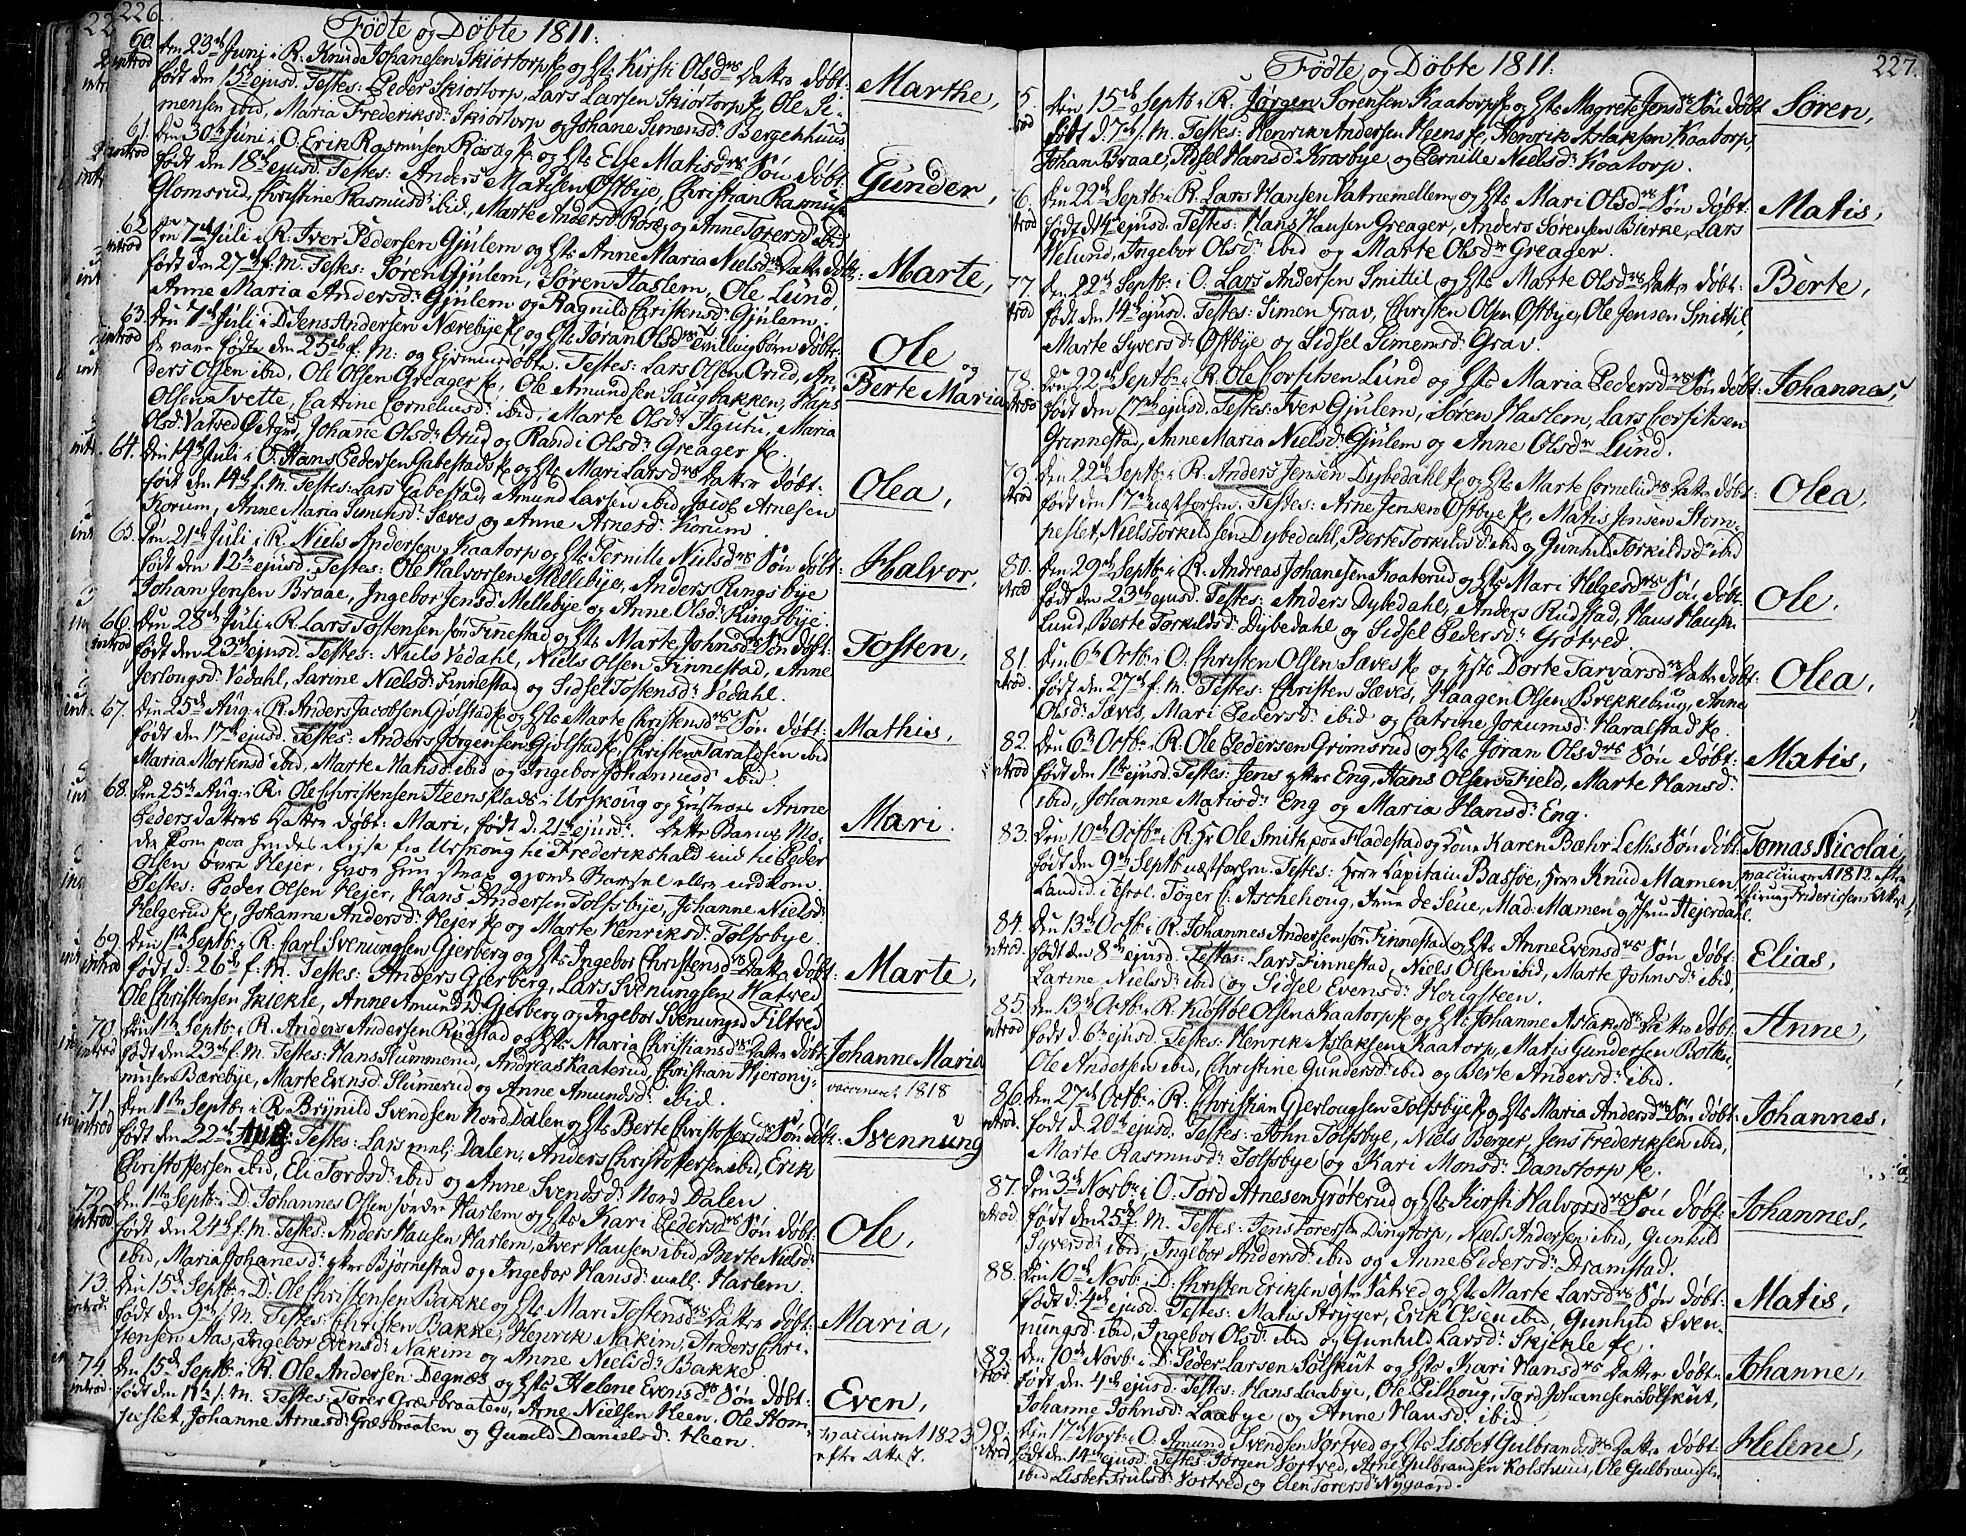 226.
Födte og Döbte 1811.
60. den 23de Junj i R. Knud Johanesen Skiörtorp og Hst. Kirsti Olsd. Datter döbt:
introd född den 15de ejusd. Testes: Peder Skiörtorp, Lars Larsen Skiörtorp, Ole Si-
mensen ibid, Maria Frederiksd. Skiörtorp og Johane Simensd. Bergenhuus
Marthe,
61. den 30te Juni i O. Erik Rasmusen Rösæg og Hst. Else Matisd. Sön döbt:
introd född den 18de ejusd. Testes: Anders Matisen Östbye, Christian Rasmus
Glomsrud, Christine Rasmusd. ibid, Marte Andersd. Rösæg og Anne Torersd. ibid
Gunder,
62. den 7de Juli i R. Iver Pedersen Gjulem og Hst. Anne Maria Nielsd. Datter döbt:
introd född den 27de f. M. Testes: Sören Gjulem, Sören Haslem, Ole Lund,
Anne Maria Andersd. Gjulem og Ragnild Christensd. Gjulem.
Marte,
63. den 7de Juli i D. Jens Andersen Nærebye og Hst. Jöran Olsd. Tvillingbörn döbte:
introd de vare födte den 25de f. M. og hjemmedöbte. Testes: Lars Olsen Orud, An-
ders Olsen ibid, Ole Olsen Greager, Ole Amundsen Saugbakken, Hans
Olsen Tvette, Cattrine Cornelusd. ibid, Marte Olsd. Maria
Olsd. Vatved, Johanne Olsd. Orud og Randi Olsd. Greager.
Ole og
Berte Maria
64. den 14de Juli i O. Hans Pedersen Gabestad og Hst. Mari Larsd. Datter döbt:
född den 14de f. M. Testes: Lars Gabestad, Amund Larsen ibid, Jacob Arnesen
Korum, Anne Maria Simensd. Sæves og Anne Arnesd. Korum.
Olea,
65. den 21de Juli i R. Niels Andersen Kaatorp og Hst. Pernille Nielsd. Sön döbt:
född den 12te ejusd. Testes: Ole Halvorsen Mellebye, Anders Ringsbye
Johan Jensen Braae, Ingebor Jensd. Mellebye og Anne Olsd. Ringsbye.
Halvor,
66. den 28de Juli i R. Lars Tostensen sön Finnestad og Hst. Marte Johnsd. Sön döbt:
introd född den 23de ejusd. Testes: Niels Vedahl, Niels Olsen Finnestad, Anne
Jerlougsd. Vedahl, Larine Nielsd. Finnestad og Sidsel Tostensd. Vedahl.
Tosten,
67. den 25de Aug. i R. Anders Jacobsen Gjölstad og Hst. Marte Christensd. Sön döbt:
född den 17de ejusd. Testes: Anders Jörgensen Gjölstad, Christen Taraldsen ibid
Maria Mortensd. ibid, Marte Matisd. ibid og Ingebor Johannesd. ibid.
Mathis,
68. den 25de Aug. i R. Ole Christensen Steensplads i Urskoug og Hustroe Anne
Pedersdatters Datter döbt: Mari, född d. 21de ejusd. Dette Barns Mo-
der kom paa hendes Rejse fra Urskoug til Frederikshald ind til Peder
Olsen övre Hejer, hvor hun strax gjorde Barsel efter ankom.
Testes: Peder Olsen Hejer, Hans Andersen Tolfsbye, Johanne Nielsd.
Helgerud, Johanne Andersd. Hejer og Marte Henriksd. Tolfsbye.
Mari.
69. den 1ste Septb. i R. Carl Svenungsen Gjerberg og Hst. Ingebor Christensd. Datter döbt:
introd född d. 26de f. M. Testes: Anders Gjerberg, Lars Svenungsen Watved
Ole Christensen Skiekle, Anne Amundsd. Gjerberg og Ingebor Svenungsd. Filtved
Marte,
70. den 1ste Septb. i R. Anders Andersen Rudstad og Hst. Maria Christiansd. Datter döbt
introd född den 23de f. M. Testes: Hans Slummerud, Andreas Kaaterud, Christian Hieronij-
musen Bærebye, Marte Evensd. Slumerud og Anne Amundsd. ibid.
Johanne Maria
vaccineret 1818
71. den 1ste Septb. i R. Brynild Svendsen Nord Dalen og Hst. Berte Christophersd. Sön döbt:
introd född den 22de Aug: Testes: Lars mel. Dalen, Anders Christophersen ibid, Erik
Christophersen ibid, Eli Tordsd. ibid og Anne Svendsd. Nord Dalen.
Svennung
72. den 1ste Septb. i D. Johannes Olsen söndre Harlem og Hst. Kari Pedersd. Sön döbt:
introd född den 24de f. M. Testes: Anders Hansen Harlem, Iver Hansen ibid, Berte Nielsd.
ibid, Maria Johanesd. ytre Björnestad og Ingebor Hansd. mell. Harlem.
Ole,
73. den 15de Septb. i D. Ole Christensen Bakke og Hst. Mari Tostensd. Datter döbt:
introd. född den 9de f. M. Testes: Christen Bakke, Henrik Nakim, Anders Chri-
stensen Aas, Ingebor Evensd. Nakim og Anne Nielsd. Bakke.
Maria,
74. den 15de Septb. i R. Ole Andersen Degnæs og Hst. Helene Evensd. Sön döbt:
introd. född den 11te f. M. Testes: Torer Græsbraaten, Arne Nielsen Heen, Ole Stom-
peslet, Johanne Arnesd. Græsbraaten og Gunild Danielsd. Heen.
Even,
vaccineret 1823
efter Attest.
227.
Födte og Döbte 1811.
75. den 15de Septb. i R. Jörgen Sörensen Kaatorp og Hst. Magrete Jensd. Sön döbt
introd född d. 7de f. M. Testes: Henrik Andersen Heens, Henrik Aslaksen Kaatorp,
Johan Braae, Sidsel Hansd. Krosbye og Pernille Nielsd. Kaatorp.
Sören,
76. den 22de Septb. i R. Lars Hansen Vatnemellem og Hst. Mari Olsd. Sön döbt:
introd född d. 14de ejusd. Testes: Hans Hansen Greager, Anders Sörensen Bierke, Lars
Velund, Ingebor Olsd. ibid og Marte Olsd. Greager.
Matis,
77. den 22de Septb. i O. Lars Andersen Smittil og Hst. Marte Olsd. Datter döbt:
introd född den 14de ejusd. Testes: Simen Grav, Christen Olsen Östbye, Ole Jensen Smittil,
Marte Syversd. Östbye og Sidsel Simensd. Grav.
Berte,
78. den 22de Septb. i R. Ole Corfitsen Lund og Hst. Maria Pedersd. Sön döbt:
introd född den 17de ejusd. Testes: Iver Gjulem, Sören Haslem, Lars Corfitsen
Grinnestad, Anne Maria Nielsd. Gjulem og Anne Olsd. Lund.
Johannes,
79. den 22de Septb. i R. Anders Jensen Dybedahl og Hst. Marte Cornelusd. Datter döbt:
introd född den 17de næstforhen. Testes: Arne Jensen Östbye, Matis Jensen Stom-
peslet, Niels Torkildsen Dybedahl, Berte Torkildsd. ibid og Gunhil Torkildsd. ibid
Olea,
80. den 29de Septb. i R. Andreas Johanesen Kaaterud og Hst. Mari Helgesd. Sön döbt.
introd född den 23de ejusd. Testes: Anders Dybedahl, Anders Rudstad, Hans Hansen
Lund, Berte Torkildsd. Dybedahl og Sidsel Pedersd. Grötved.
Ole.
81. den 6te Octb. i O. Christen Olsen Sæves og Hst. Dorte Tarvarsd. Datter döbt:
introd. född den 27de f. M. Testes: Christen Sæves, Haagen Olsen Brekkebrug, Anne
Olsd. Sæves, Mari Pedersd. ibid og Catrine Jokumsd. Haralstad.
Olea,
82. den 6te Octb. i R. Ole Pedersen Grimsrud og Hst. Jöran Olsd. Sön döbt:
introd född den 1ste ejusd. Testes: Jens ytre Eng, Hans Olsen Field, Marte Hansd.
ibid, Johanne Matisd. Eng og Maria Hansd. Eng.
Matis,
83. den 10de Octb. i R. Hr Ole Smith paa Fladestad og Kone Karen Bæhr Leths Sön döbt:
född den 9de Septb. næstforhen. Testes: Herr Kapitain Bassöe, Herr Knud Mamen,
Candid. i Teol. Töger C. Aschehoug, Frue de Seue, Mad: Mamen og Jfru Hejerdahl.
Tomas Nicolai,
vaccineret 1812 efter
Chirurg. Friderichsens Attest
84. den 13de Octb. i R. Johannes Andersen sön Finnestad og Hst. Anne Evensd. Sön döbt:
introd. född den 8de ejusd. Testes: Lars Finnestad, Niels Olsen ibid, Marte Johnsd. ibid,
Larine Nielsd. ibid og Sidsel Evensd. Haugsteen.
Elias,
85. den 13de Octb. i R. Kiöstöl Olsen Kaatorp og Hst. Johanne Aslaksd. Datter döbt.
introd född d. 6te ejusd. Testes: Henrik Aslaksen Kaatorp, Matis Gundersen Botten,
Ole Andersen ibid, Christine Gundersd. ibid og Berte Andersd. ibid.
Anne,
86. den 27de Octb. i R. Christian Gjerlougsen Tolfsbye og Hst. Maria Andersd. Sön döbt:
introd. född d. 20de ejusd. Testes: John Tolfsbye, Niels Berger, Jens Frederiksen ibid,
Marte Rasmusd. Tolfsbye og Kari Monsd. Danstorp.
Johannes,
87. den 3de Novb. i O. Tord Arnesen Gröterud og Hst. Kirsti Halvorsd. Sön döbt:
introd. född den 25de f. M. Testes: Jens Torersen Dingtorp, Niels Andersen ibid, Gunhild
Syversd. ibid, Ingebor Andersd. ibid og Anne Pedersd. Dramstad.
Johannes,
88. den 10de Novb. i D. Christen Eriksen östre Vatved og Hst. Marte Larsd. Sön döbt:
född d. 4de ejusd. Testes: Matis Stryger, Erik Olsen ibid, Gunhild Sven-
nungsd. ibid, Ingebor Olsd. ibid og Gunhild Larsd. Skjekle.
Matis,
89. den 10de Novb. i D. Peder Larsen Solskut og Hst. Kari Hansd. Datter döbt:
introd. född den 4de ejusd. Testes: Hans Laabye, Ole Pilhoug, Tord Johannesen Solskut,
Johanne Johnsd. Laabye og Anne Hansd. ibid.
Johanne,
90. den 17de Novb. i O. Amund Svendsen Vortved og Hst. Lisbet Gulbrandsd. Datter döbt:
introd född den 14de ejusd. Testes: Jörgen Vortved, Arne Gulbrandsen Kolshuus, Ole Gulbrandsen
ibid, Lisbet Trulsd. Vortved, og Elen Torersd. Nygaard.
Helene,